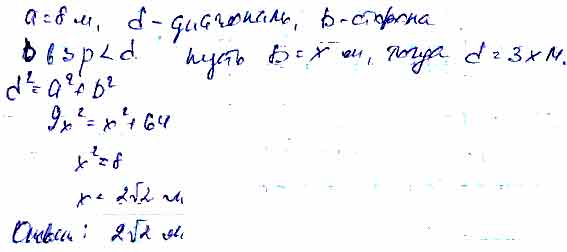 a = 8 м, d - диагональ, b - сторона
b в 3 р < d. Пусть b = x м, тогда d = 3x м.
d² = a² + b²
9x² = x² + 64
x² = 8
x = 2√2 м
Ответ: 2√2 м